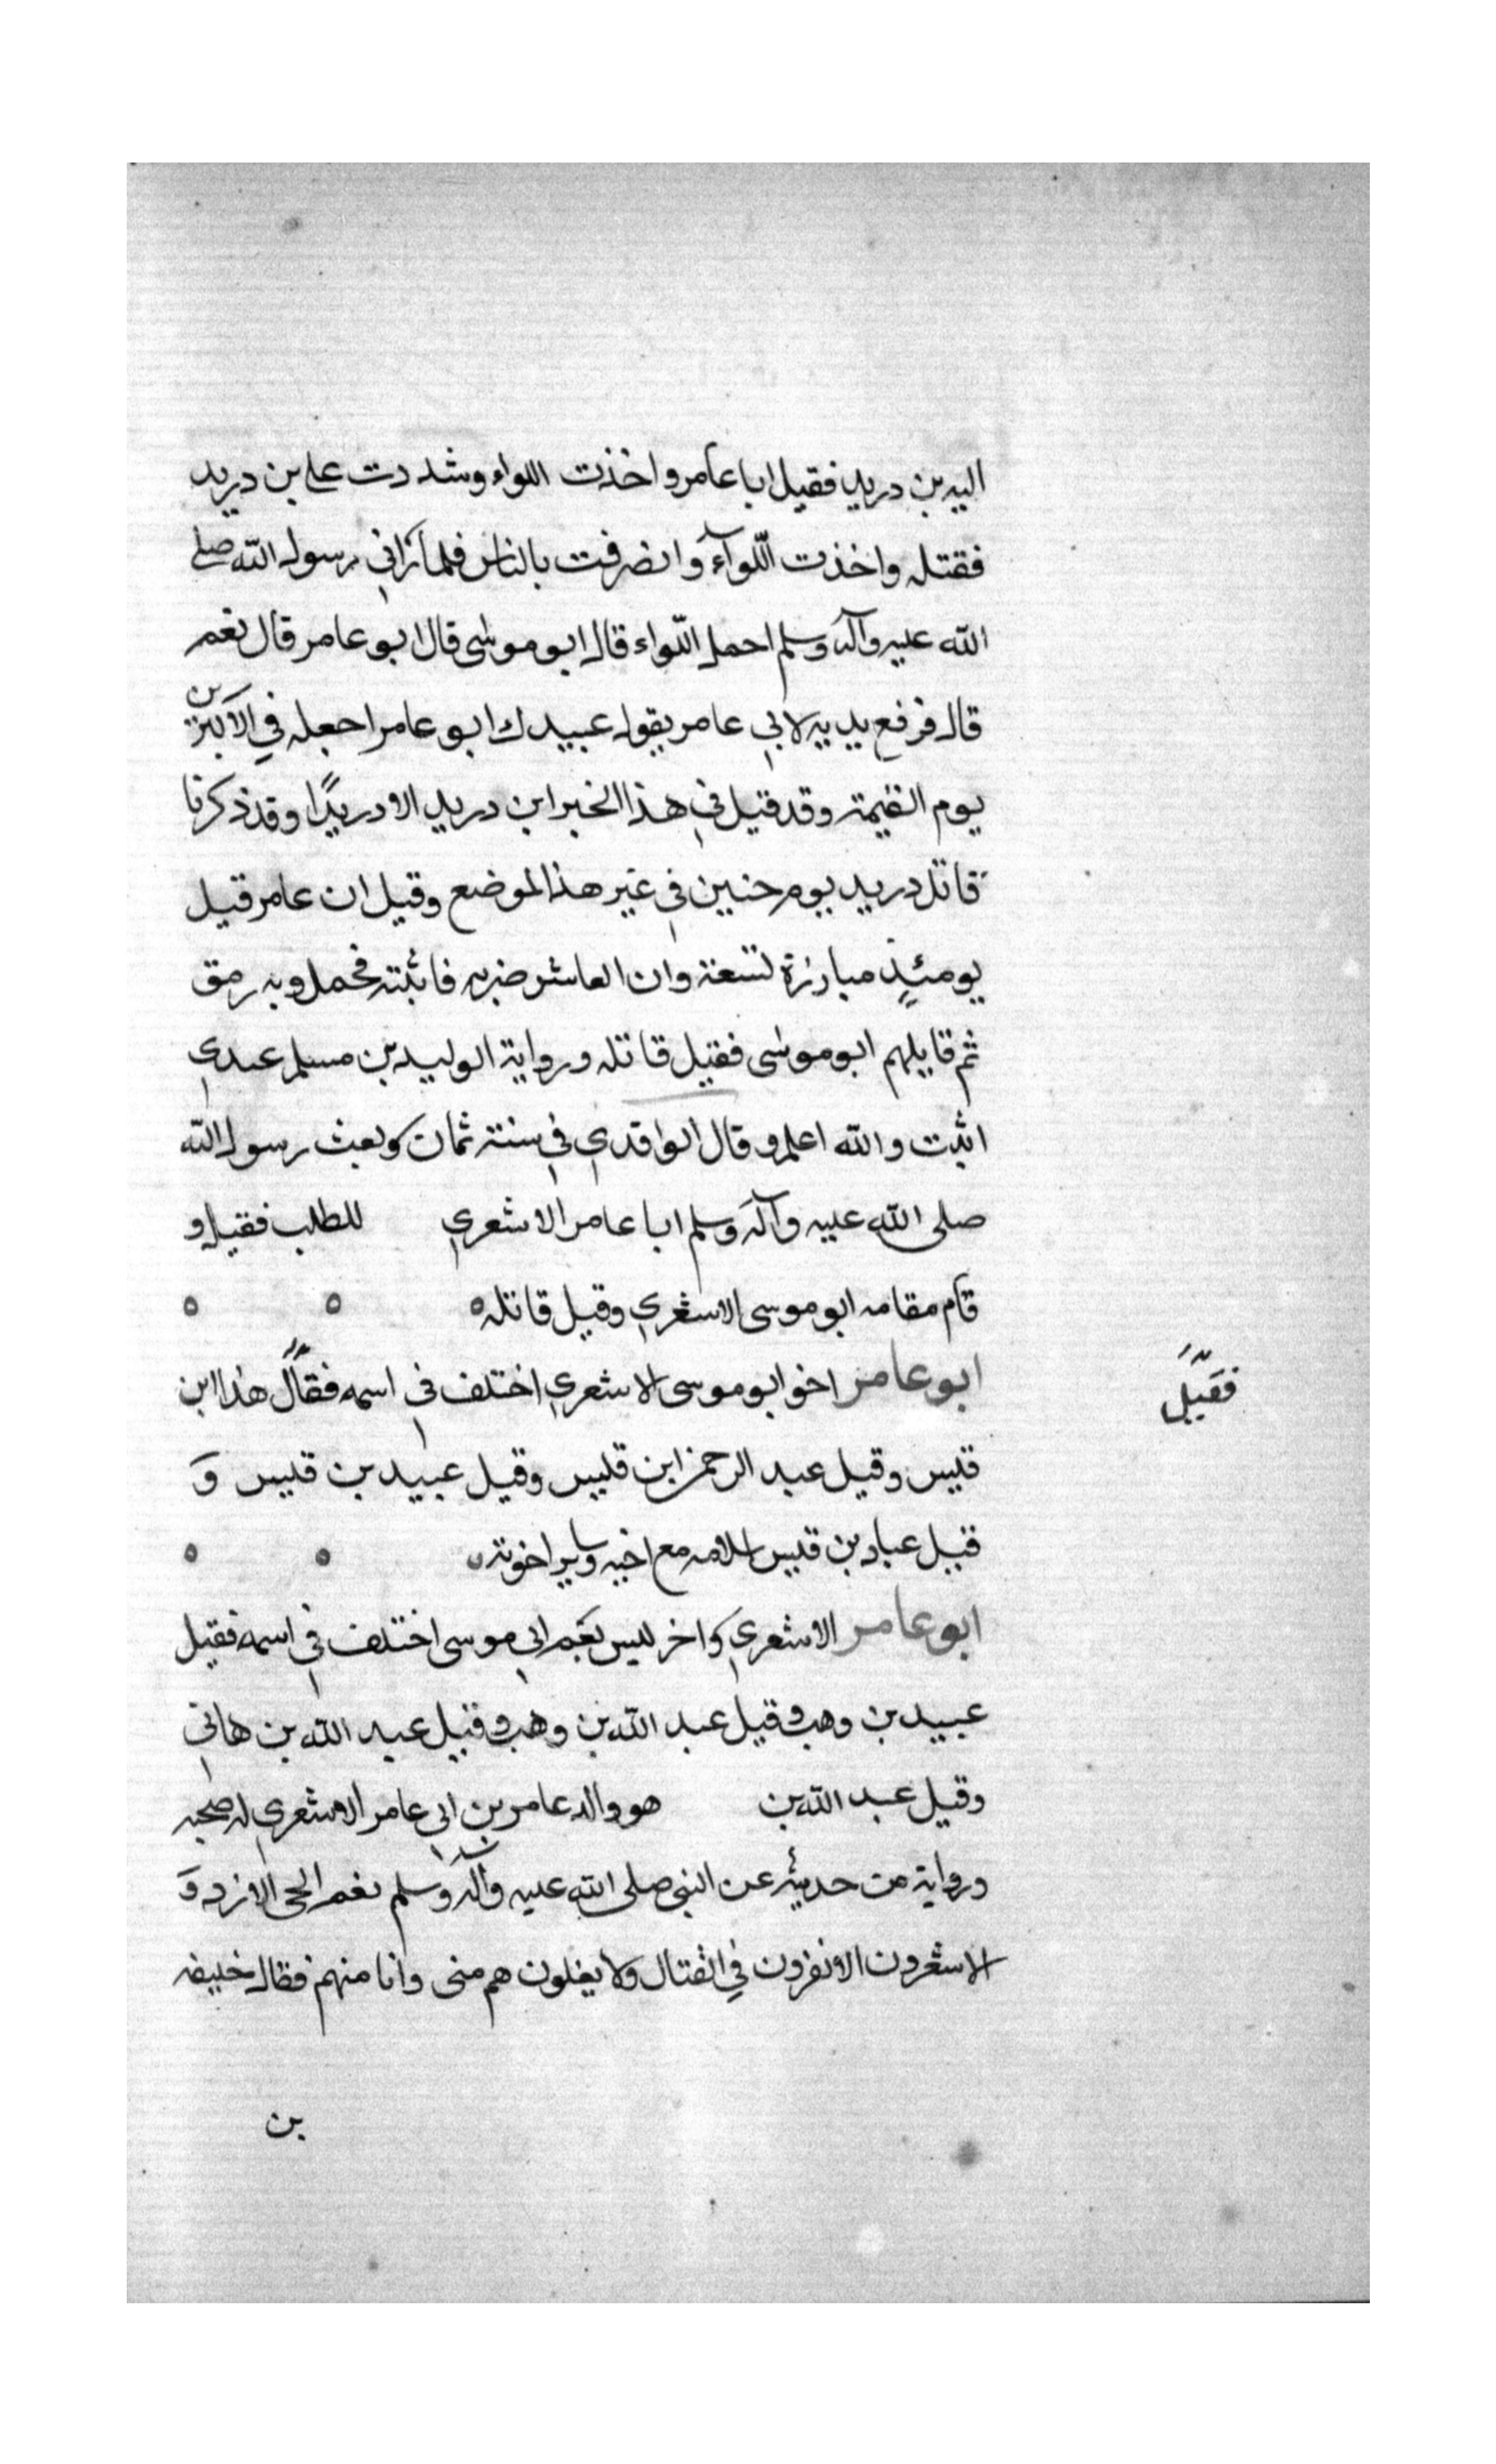 اليه بن دريد فقيل ابا عامر واخذت اللواء وشددت على بن دريد
فقتله واخذت اللّوآء وانصرفت بالناس فلما رَاني رسول الله صلى
الله عليه وآله وسلم احمل اللّواء قال ابو موسى قال ابو عامر قال نعم
قال فرفع يديه لابي عامر يقول عبيدك ابو عامر اجعله في الاكبرين
يوم القيمة وقد قيل في هذا الخبر ابن دريد الا دريدًا وقد ذكرنا
قاتل دريد يوم حنين في غير هذا الموضع وقيل ان عامر قيل
يومئذٍ مبارزة تسعة وان العاشر ضربه فاثبته فحمل وبه رمق
ثم قايلهم ابو موسى فقيل قاتله ورواية الوليد بن مسلم عندي
اثبت والله اعلم وقال الواقدي في سنة ثمان وبعث رسول الله
صلى الله عليه وآله وسلم ابا عامر الاشعري للطلب فقيل و
قام مقامه ابو موسى الاشعري وقيل قاتله ه ه ه
ابو عامر اخو ابو موسى الاشعري اختلف في اسمه فقال هذا ابن
فقيل
قيس وقيل عبد الرحمن ابن قيس وقيل عبيد بن قيس وَ
قيل عباد بن قيس اسلامه مع اخيه وساير اخوته ه ه
ابو عامر الاشعري واخر ليس بَعَم ابي موسى اختلف في اسمه فقيل
عبيد بن وهب وقيل عبد الله بن وهب وقيل عبد الله بن هاني
وقيل عبد الله بن هو والد عامر بن ابي عامر الاشعري له صحبه
ورواية من حديثه عن النبي صلى الله عليه وآله وسلم نعم الحي الازد وَ
الاشعرون لا يفرون في القتال ولا يغلون هم منى وانا منهم فقال خليفه
بن